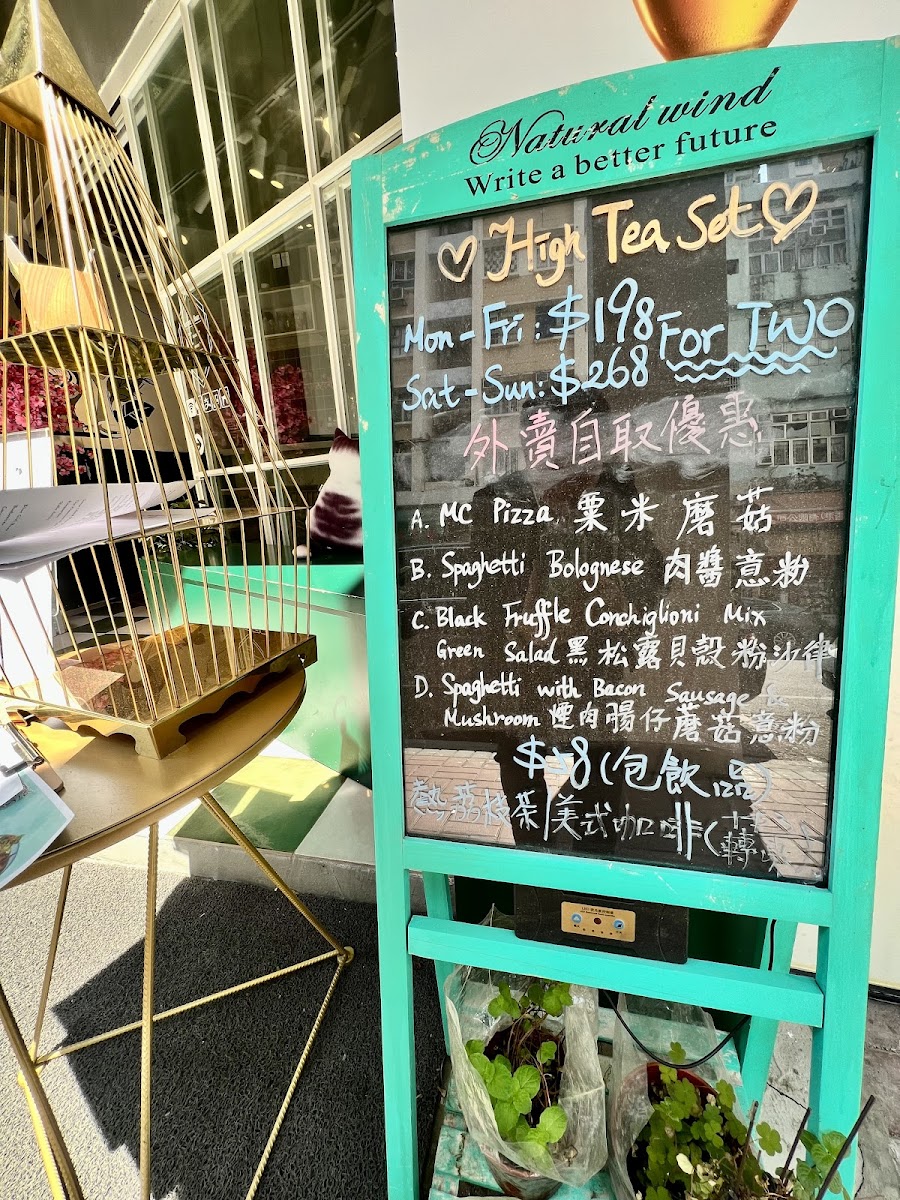 Natural wind
Write a better future
High Tea Set
Mon-Fri: $198 For TWO
Sat-Sun: $268
外賣自取優惠
A. MC Pizza 粟米磨菇
B. Spaghetti Bolognese 肉醬意粉
C. Black Fruffle Conchiglioni Mix
Green Salad 黑松露貝殼粉沙律
D. Spaghetti with Bacon Sausage &
Mushroom 煙肉腸仔蘑菇意粉
(包飲品)
美式咖啡